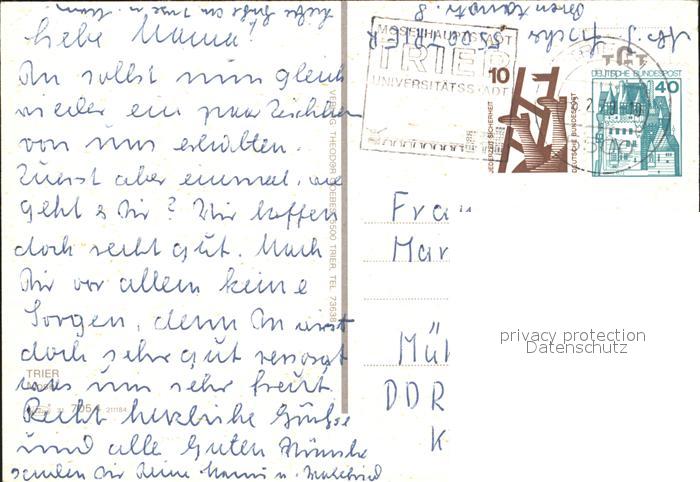 Liebe Mama!
Du sollst nun gleich
wieder ein paar Zeichen
von uns erhalten.
Zuerst aber einmal, wie
geht's Dir? Wir hoffen
doch recht gut. Mach
Dir vor allem keine
Sorgen, denn Du wirst
doch sehr gut versorgt
was uns sehr freut.
Recht herzliche Grüße
und alle guten Wünsche
senden Dir Deine Hanni u.
TRIER
MOSEL
705 211184
VERLAG THEODOR 5500 TRIER, TEL. 73638
MOSELHAUPTSTADT
TRIER
UNIVERSITÄTSSTADT
5500 TRIER
10
JEDERZEIT SICHERHEIT
DEUTSCHE BUNDESPOST
DEUTSCHE BUNDESPOST
40
Frau
Mar
Mül
DDR
K
privacy protection
Datenschutz